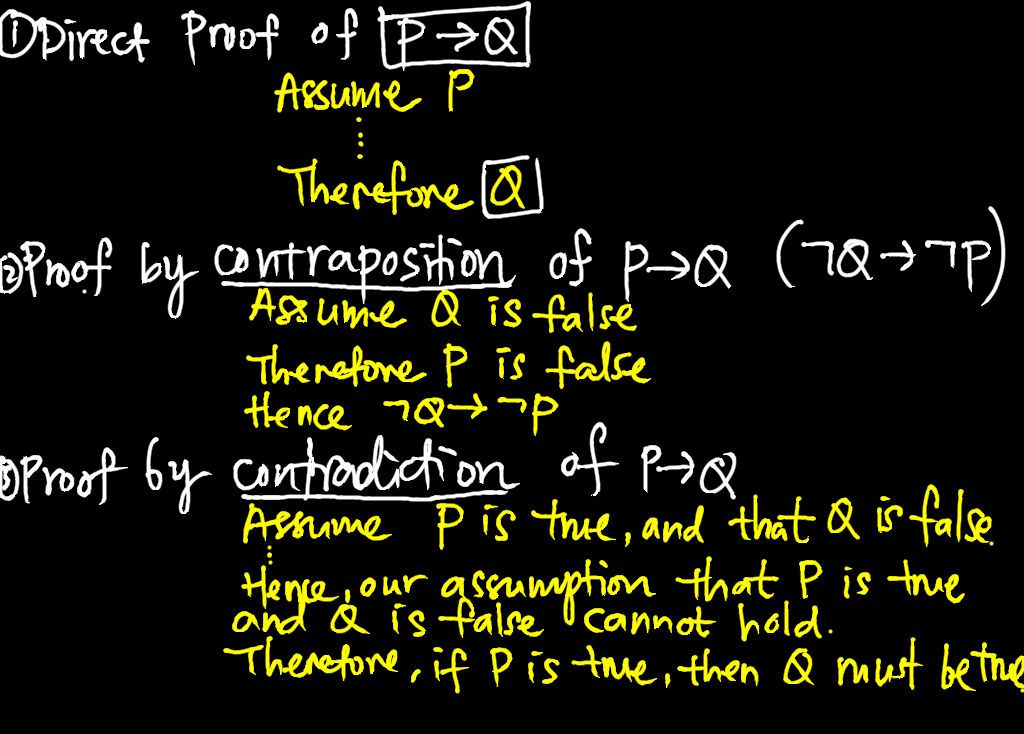 ①Direct Proof of P→Q
Assume P
⋮
Therefore Q
②Proof by contraposition of P→Q (¬Q→¬P)
Assume Q is false
Therefore P is false
Hence ¬Q→¬P
③Proof by contradiction of P→Q
Assume P is true, and that Q is false.
⋮
Hence, our assumption that P is true
and Q is false cannot hold.
Therefore, if P is true, then Q must be true